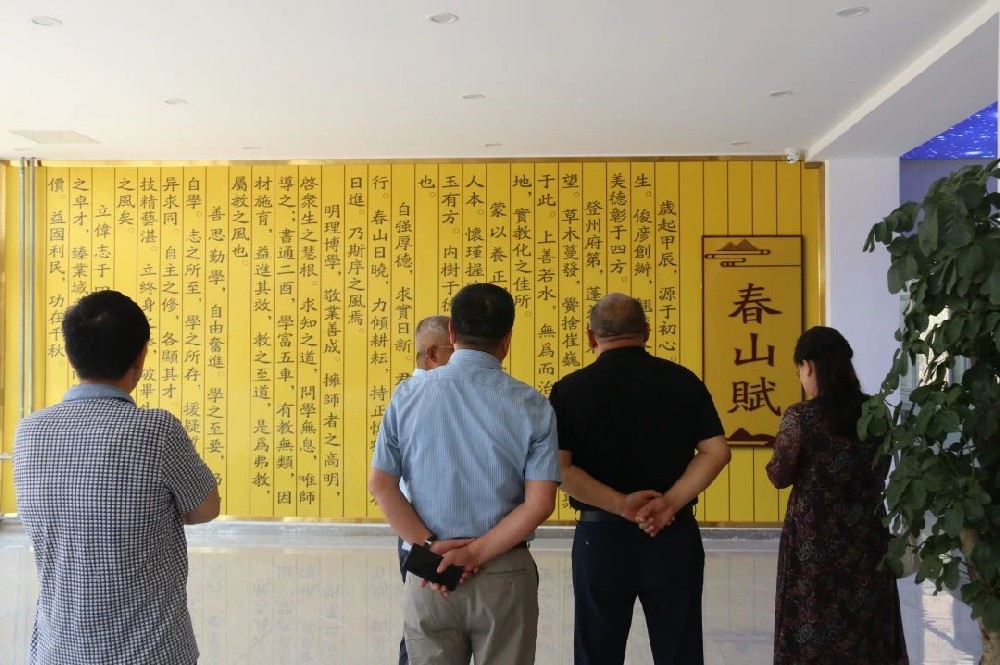 春山賦
歲起甲辰，源于初心
生。俊彥創辦，
美德彰于四方。
登州府第，蓬
望。草木蔓發，黌捨崔巍
于此。上善若水，無爲而治
地，實教化之佳所。
蒙以養正
人本。懷瑾握
玉有方。内樹于
也。
自強厚德，求實日新，君
行。春山日曉，力傾耕耘，持正
日逛。乃斯序之風焉。
明理博學，敬業善成。擁師者之高明，
啓衆生之慧根。求知之道，問學無息，唯師
導之；書通二酉，學富五車，有教無類，因
材施育，益進其效，教之至道，是爲弗教，
屬教之風也。
善思勤學，自由奮進，學之至要，
自學。志之所至，學之所存，援疑
异求同。自主之修，各顯其才
技精藝湛。立終身
之風矣。
立偉志于
之卓才，臻業域
價。益國利民，功在千秋